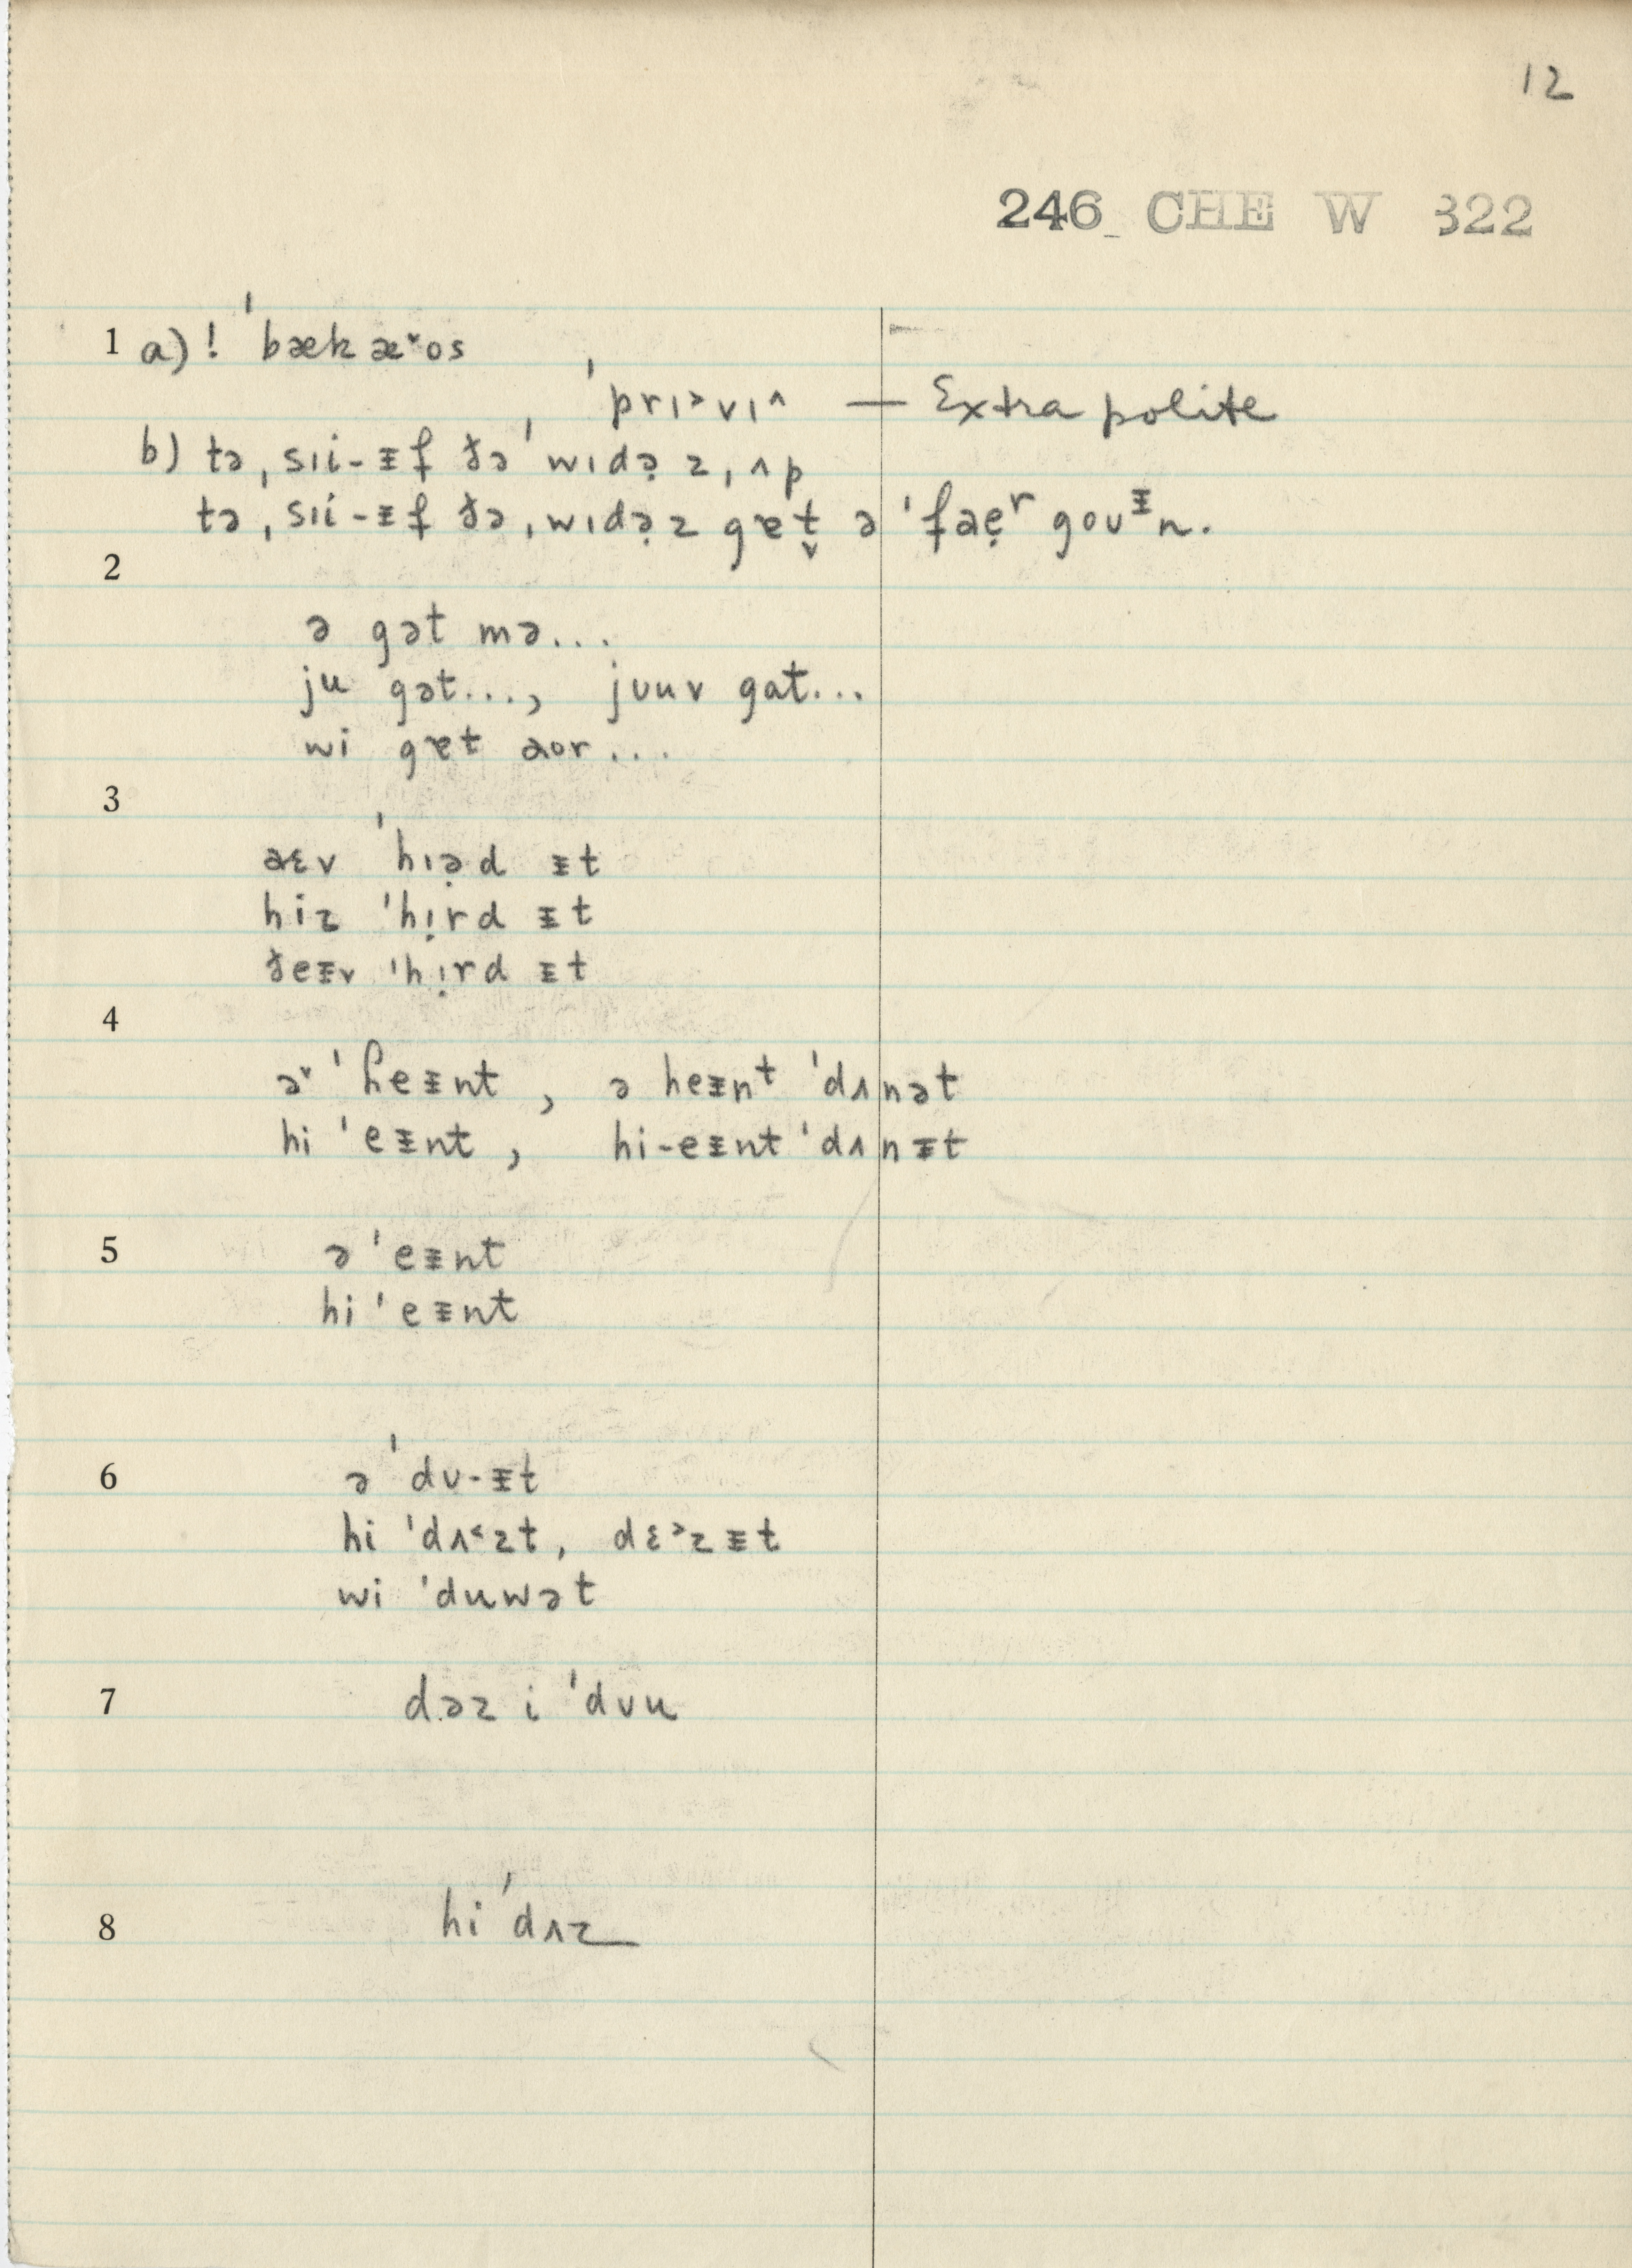 12
246 CHE W 322
1 a) ! ˈbækæ˅os
ˈprɪ˃vɪ˄ — Extra polite
b) tə ˌsɪi-ᵻf ðə ˈwɪdə̣z ˌʌp
tə ˌsɪi-ᵻf ðə ˌwɪdə̣z gɐt̬ ə ˈfaẹʳ goʊᵻn.
2
ə gət mə...
ju gət..., jʊuv gat...
wi gɐt aor...
3
aɛv ˈhɪə̣d ᵻt
hiz ˈhị rd ᵻt
ðeᵻv ˈhị rd ᵻt
4
ə˅ ˈɦeᵻnt , ə heᵻnᵗ ˈdʌnət
hi ˈeᵻnt , hi-eᵻnt ˈdʌnᵻt
5 ə ˈeᵻnt
hi ˈeᵻnt
6 ə ˈdʊ-ᵻt
hi ˈdʌ˂zt, dɛ˃zᵻt
wi ˈduwət
7 dəz i ˈdʊu
8 hi ˈdʌz